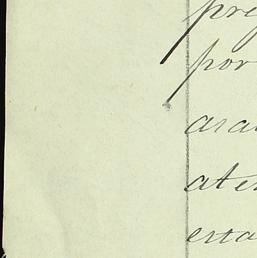 pre
por
ara
ate
esta